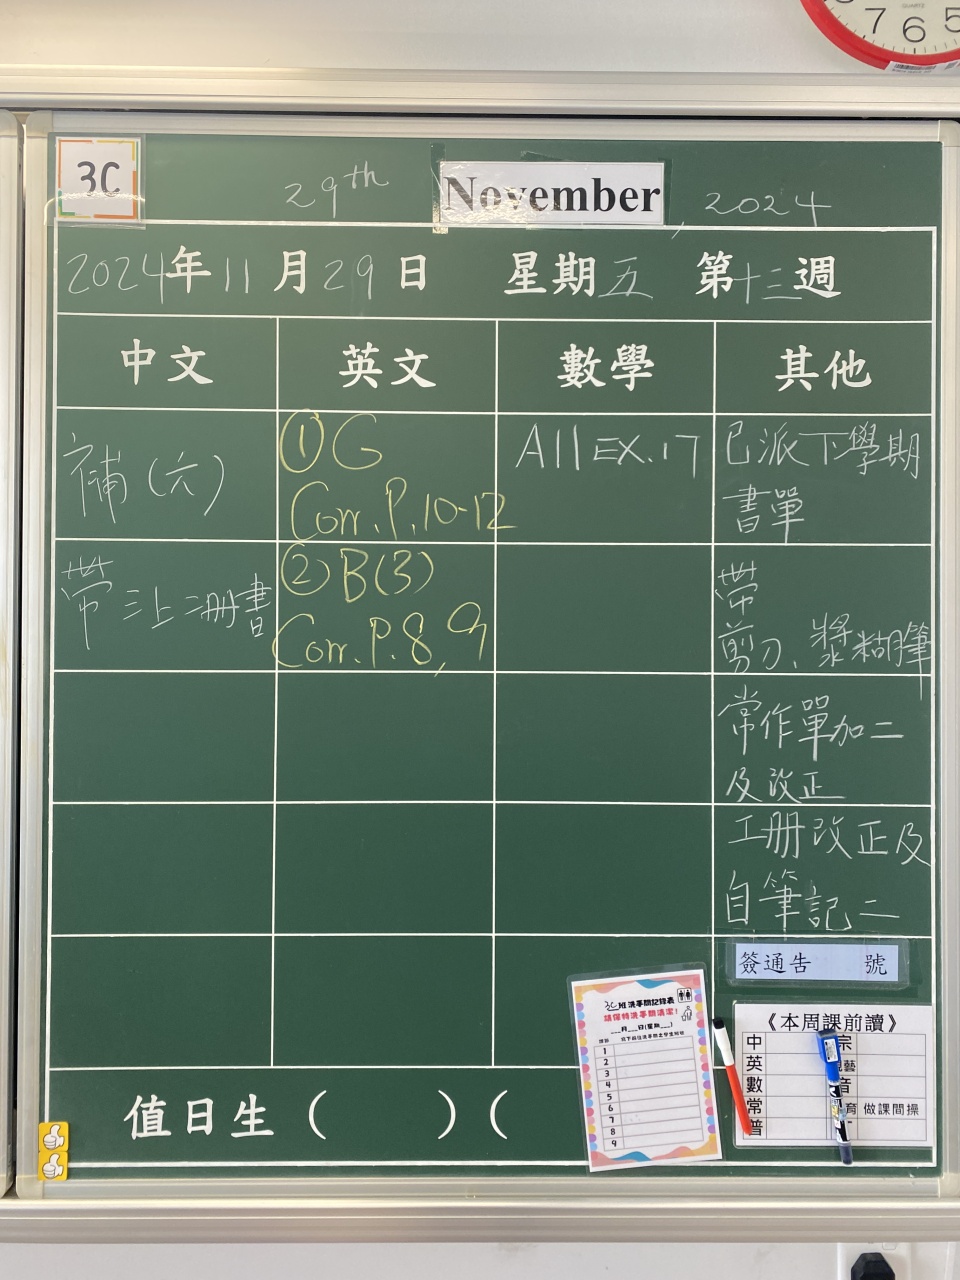 7 6 5
3C
29th November, 2024
2024年11月29日 星期五 第十三週
中文 英文 數學 其他
補(六)
帶三上二冊書
①G
Corr.P.10-12
②B(3)
Corr.P.8,9
All EX.17
已派下學期
書單
帶
剪刀、漿糊筆
常作單加二
及改正
工冊改正及
自筆記二
簽通告 號
3C班洗手間記錄表
請保持洗手間清潔!
___月___日(星期___)
1
2
3
4
5
6
7
8
9
《本周課前讀》
中 宗
英 視藝
數 音
常 育 做課間操
普
值日生( )(